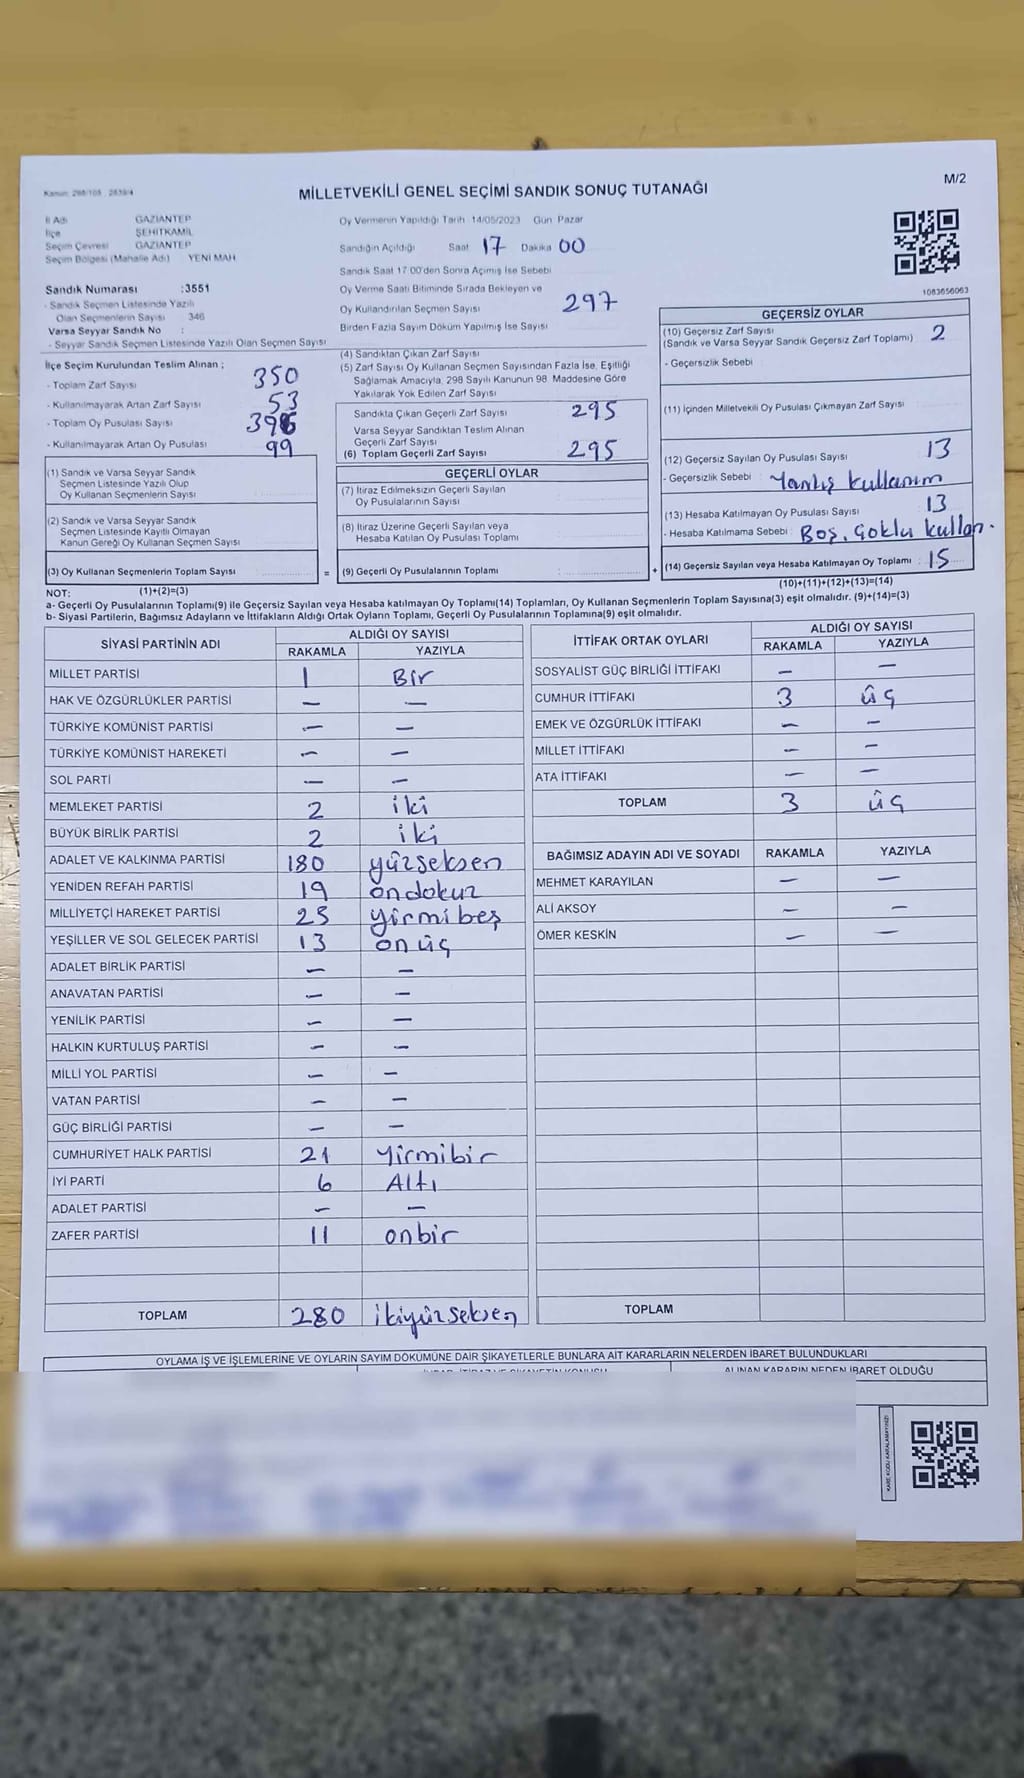 Kanun: 298/105 2839/4
MİLLETVEKİLİ GENEL SEÇİMİ SANDIK SONUÇ TUTANAĞI
M/2
İl Adı GAZİANTEP
İlçe ŞEHİTKAMİL
Seçim Çevresi GAZİANTEP
Seçim Bölgesi (Mahalle Adı) YENİ MAH
Sandık Numarası :3551
- Sandık Seçmen Listesinde Yazılı
Olan Seçmenlerin Sayısı 346
Varsa Seyyar Sandık No :
- Seyyar Sandık Seçmen Listesinde Yazılı Olan Seçmen Sayısı
Oy Vermenin Yapıldığı Tarih 14/05/2023 Gün Pazar
Sandığın Açıldığı Saat 17 Dakika 00
Sandık Saat 17 00'den Sonra Açımış İse Sebebi
Oy Verme Saati Bitiminde Sırada Bekleyen ve
Oy Kullandırılan Seçmen Sayısı 297
Birden Fazla Sayım Döküm Yapılmış İse Sayısı
1083656063
İlçe Seçim Kurulundan Teslim Alınan ;
- Toplam Zarf Sayısı 350
- Kullanılmayarak Artan Zarf Sayısı 53
- Toplam Oy Pusulası Sayısı 396
- Kullanılmayarak Artan Oy Pusulası 99
(1) Sandık ve Varsa Seyyar Sandık
Seçmen Listesinde Yazılı Olup
Oy Kullanan Seçmenlerin Sayısı
(2) Sandık ve Varsa Seyyar Sandık
Seçmen Listesinde Kayıtlı Olmayan
Kanun Gereği Oy Kullanan Seçmen Sayısı
(3) Oy Kullanan Seçmenlerin Toplam Sayısı =
(4) Sandıktan Çıkan Zarf Sayısı
(5) Zarf Sayısı Oy Kullanan Seçmen Sayısından Fazla İse, Eşitliği
Sağlamak Amacıyla, 298 Sayılı Kanunun 98. Maddesine Göre
Yakılarak Yok Edilen Zarf Sayısı
Sandıkta Çıkan Geçerli Zarf Sayısı 295
Varsa Seyyar Sandıktan Teslim Alınan
Geçerli Zarf Sayısı
(6) Toplam Geçerli Zarf Sayısı 295
GEÇERLİ OYLAR
(7) İtiraz Edilmeksizin Geçerli Sayılan
Oy Pusulalarının Sayısı
(8) İtiraz Üzerine Geçerli Sayılan veya
Hesaba Katılan Oy Pusulası Toplamı
(9) Geçerli Oy Pusulalarının Toplamı : +
GEÇERSİZ OYLAR
(10) Geçersiz Zarf Sayısı
(Sandık ve Varsa Seyyar Sandık Geçersiz Zarf Toplamı) 2
- Geçersizlik Sebebi
(11) İçinden Milletvekili Oy Pusulası Çıkmayan Zarf Sayısı
(12) Geçersiz Sayılan Oy Pusulası Sayısı 13
- Geçersizlik Sebebi : Yanlış kullanım
(13) Hesaba Katılmayan Oy Pusulası Sayısı 13
- Hesaba Katılmama Sebebi : Boş, Çoklu kullan.
(14) Geçersiz Sayılan veya Hesaba Katılmayan Oy Toplamı : 15
NOT: (1)+(2)=(3) (10)+(11)+(12)+(13)=(14)
a- Geçerli Oy Pusulalarının Toplamı(9) ile Geçersiz Sayılan veya Hesaba katılmayan Oy Toplamı(14) Toplamları, Oy Kullanan Seçmenlerin Toplam Sayısına(3) eşit olmalıdır. (9)+(14)=(3)
b- Siyasi Partilerin, Bağımsız Adayların ve İttifakların Aldığı Oyların Toplamı, Geçerli Oy Pusulalarının Toplamına(9) eşit olmalıdır.
SİYASİ PARTİNİN ADI ALDIĞI OY SAYISI
RAKAMLA YAZIYLA
MİLLET PARTİSİ 1 Bir
HAK VE ÖZGÜRLÜKLER PARTİSİ — —
TÜRKİYE KOMÜNİST PARTİSİ — —
TÜRKİYE KOMÜNİST HAREKETİ — —
SOL PARTİ — —
MEMLEKET PARTİSİ 2 iki
BÜYÜK BİRLİK PARTİSİ 2 iki
ADALET VE KALKINMA PARTİSİ 180 yüzseksen
YENİDEN REFAH PARTİSİ 19 ondokuz
MİLLİYETÇİ HAREKET PARTİSİ 25 yirmibeş
YEŞİLLER VE SOL GELECEK PARTİSİ 13 onüç
ADALET BİRLİK PARTİSİ — —
ANAVATAN PARTİSİ — —
YENİLİK PARTİSİ — —
HALKIN KURTULUŞ PARTİSİ — —
MİLLİ YOL PARTİSİ — —
VATAN PARTİSİ — —
GÜÇ BİRLİĞİ PARTİSİ — —
CUMHURİYET HALK PARTİSİ 21 Yirmibir
İYİ PARTİ 6 Altı
ADALET PARTİSİ — —
ZAFER PARTİSİ 11 onbir
TOPLAM 280 ikiyüzseksen
İTTİFAK ORTAK OYLARI ALDIĞI OY SAYISI
RAKAMLA YAZIYLA
SOSYALİST GÜÇ BİRLİĞİ İTTİFAKI — —
CUMHUR İTTİFAKI 3 üç
EMEK VE ÖZGÜRLÜK İTTİFAKI — —
MİLLET İTTİFAKI — —
ATA İTTİFAKI — —
TOPLAM 3 üç
BAĞIMSIZ ADAYIN ADI VE SOYADI RAKAMLA YAZIYLA
MEHMET KARAYILAN — —
ALİ AKSOY — —
ÖMER KESKİN — —
TOPLAM
OYLAMA İŞ VE İŞLEMLERİNE VE OYLARIN SAYIM DÖKÜMÜNE DAİR ŞİKAYETLERLE BUNLARA AİT KARARLARIN NELERDEN İBARET BULUNDUKLARI
ALINAN KARARIN NEDEN İBARET OLDUĞU
KARE KODU KARALAMAYINIZ!